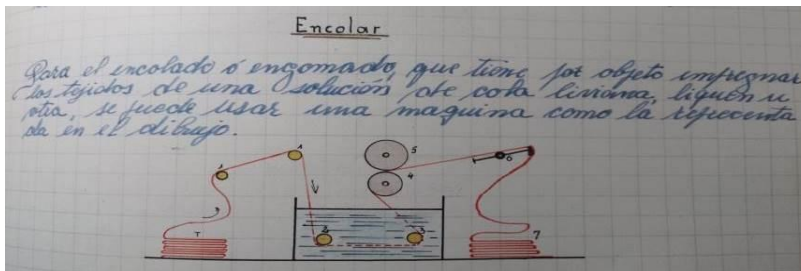 Encolar
Para el encolado ó engomado, que tiene por objeto impregnar
los tejidos de una solución de cola liviana, liquen u
otra, se puede usar una maquina como la representa
da en el dibujo.
1 1 5 4 6
2 3
T 7